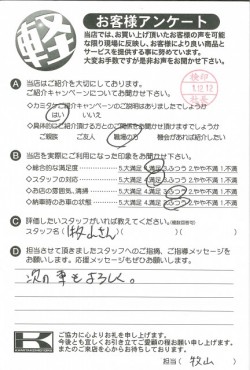 軽
お客様アンケート
当店では、お買い上げ頂いたお客様の声を可能
な限り現場に反映し、お客様により良い商品と
サービスを提供する事に努めています。
大変お手数ですが是非お声をお聞かせ下さい。
検印
A 当店はご紹介を大切にしております。
ご紹介キャンペーンについてお聞かせ下さい。
はい いいえ
ご親族 ご友人 職場の方
B 当社を実際にご利用になった印象をお聞かせ下さい。
◇総合的な満足度 5.大満足 4.満足 3.ふつう 2.やや不満 1.不満
◇スタッフの対応 5.大満足 4.満足 3.ふつう 2.やや不満 1.不満
◇お店の雰囲気、清掃 5.大満足 4.満足 3.ふつう 2.やや不満 1.不満
◇納車時のお車の状態 5.大満足 4.満足 3.ふつう 2.やや不満 1.不満
C 評価したいスタッフがいれば教えてください。(複数回答可)
スタッフ名( 牧山さん )
D 担当させて頂きましたスタッフへのご指摘、ご指導メッセージを
お願いします。応援メッセージもぜひお願いします。
次の車もよろしく。
K
ご協力に心よりお礼を申し上げます。
今後とも宜しくお引き立てご愛顧の程お願い申し上げます。
またのご来店を心からお待ちしております。
担当( 牧山 )